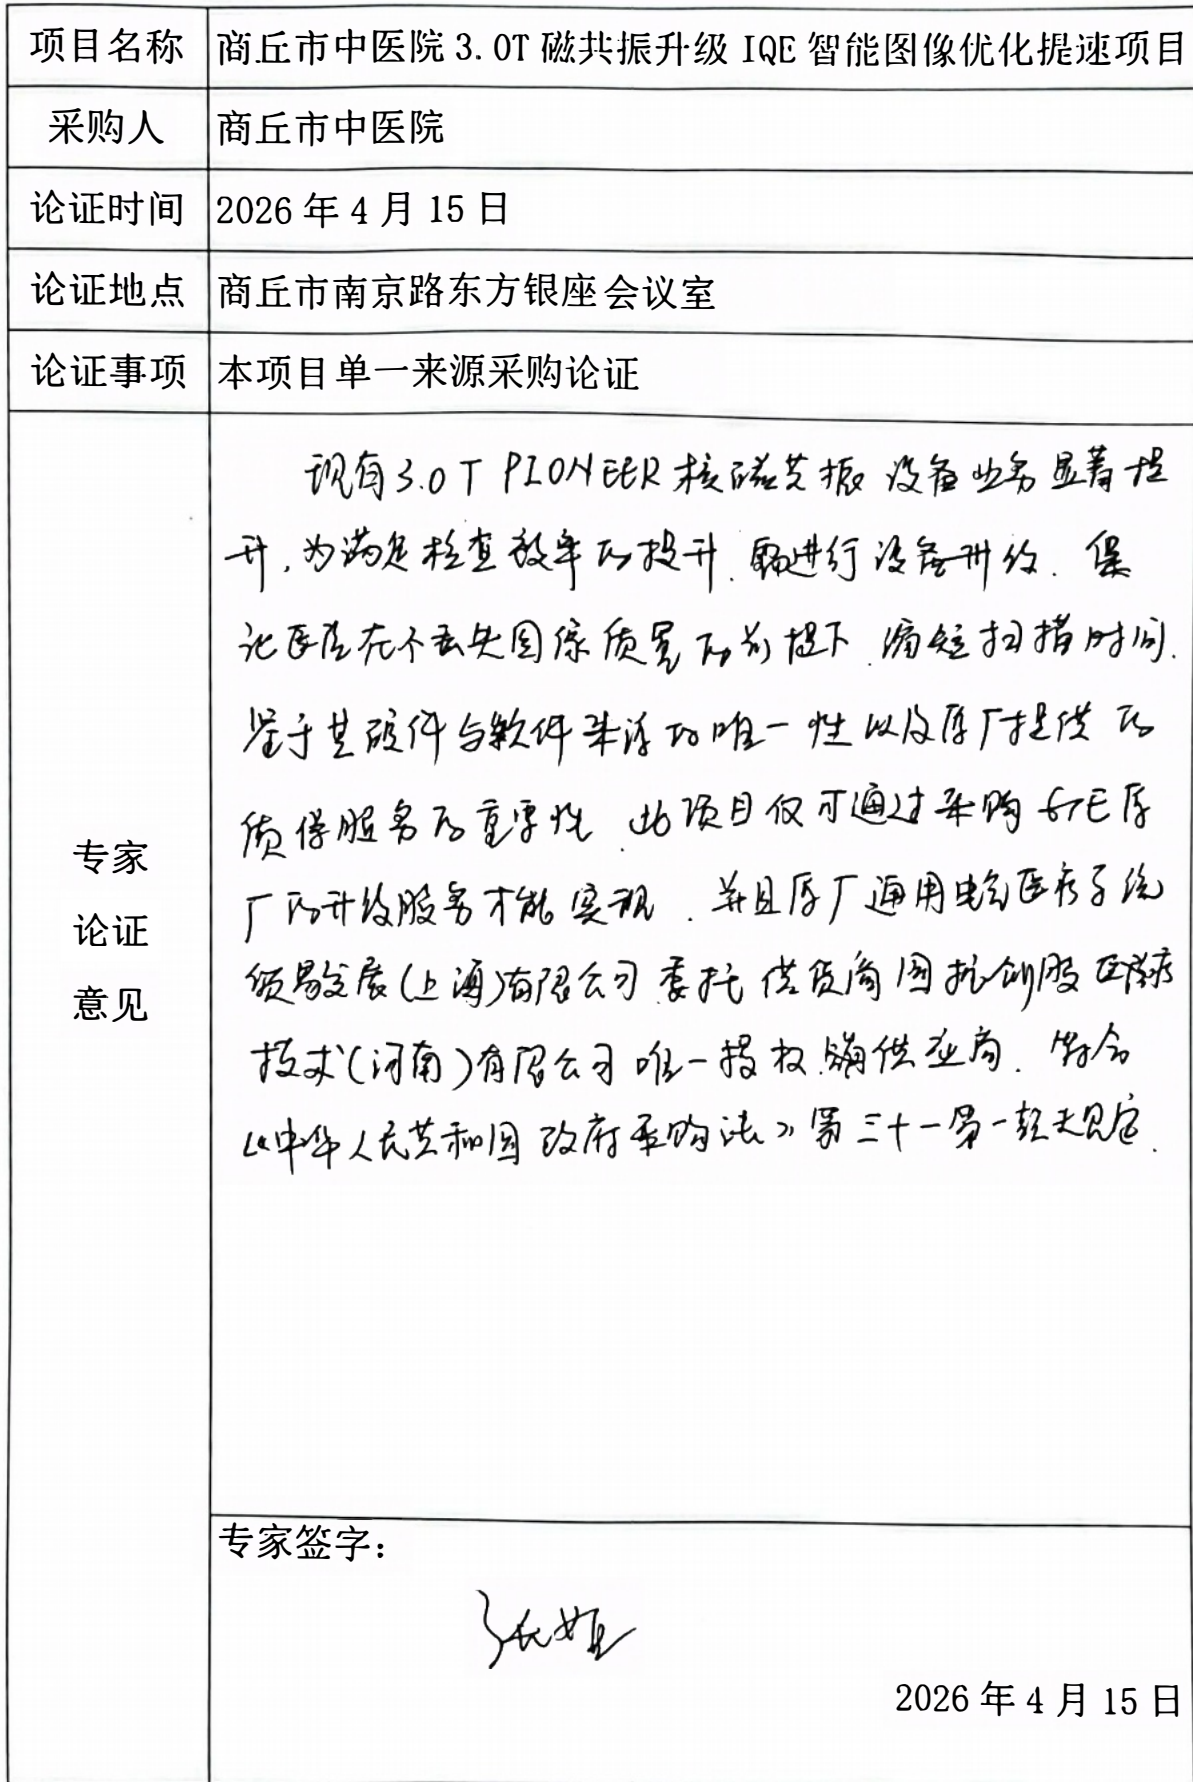 项目名称 商丘市中医院 3.0T 磁共振升级 IQE 智能图像优化提速项目
采购人 商丘市中医院
论证时间 2026 年 4 月 15 日
论证地点 商丘市南京路东方银座会议室
论证事项 本项目单一来源采购论证
专家
论证
意见
现有3.0T PIONEER 核磁共振 设备业务显著提
升,为满足检查效率的提升.需进行设备升级.保
证医院在不丢失图像质量的前提下.缩短扫描时间.
鉴于其硬件与软件来源的唯一性以及原厂提供的
质保服务的重要性.此项目仅可通过采购GE原
厂的升级服务才能实现.并且原厂通用电气医疗系统
贸易发展(上海)有限公司委托供货商国控创服医疗
技术(河南)有限公司唯一授权 供应商.符合
《中华人民共和国政府采购法》第三十一第一款规定.
专家签字:
张
2026 年 4 月 15 日